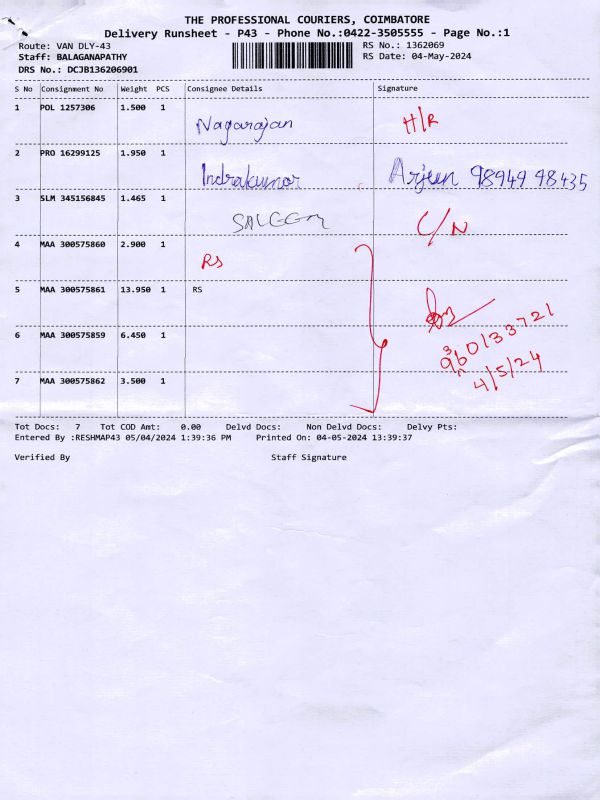 THE PROFESSIONAL COURIERS, COIMBATORE
Delivery Runsheet - P43 - Phone No.:0422-3505555 - Page No.:1
Route: VAN DLY-43 RS No.: 1362069
Staff: BALAGANAPATHY RS Date: 04-May-2024
DRS No.: DCJB136206901
S No Consignment No Weight PCS Consignee Details Signature
1 POL 1257306 1.500 1
Nagarajan H/R
2 PRO 16299125 1.950 1
Indrakumar Arjun 98949 98435
3 SLM 345156845 1.465 1
C/N
4 MAA 300575860 2.900 1
RS
5 MAA 300575861 13.950 1 RS
6 MAA 300575859 6.450 1
7 MAA 300575862 3.500 1
4/5/24
Tot Docs: 7 Tot COD Amt: 0.00 Delvd Docs: Non Delvd Docs: Delvy Pts:
Entered By :RESHMAP43 05/04/2024 1:39:36 PM Printed On: 04-05-2024 13:39:37
Verified By Staff Signature